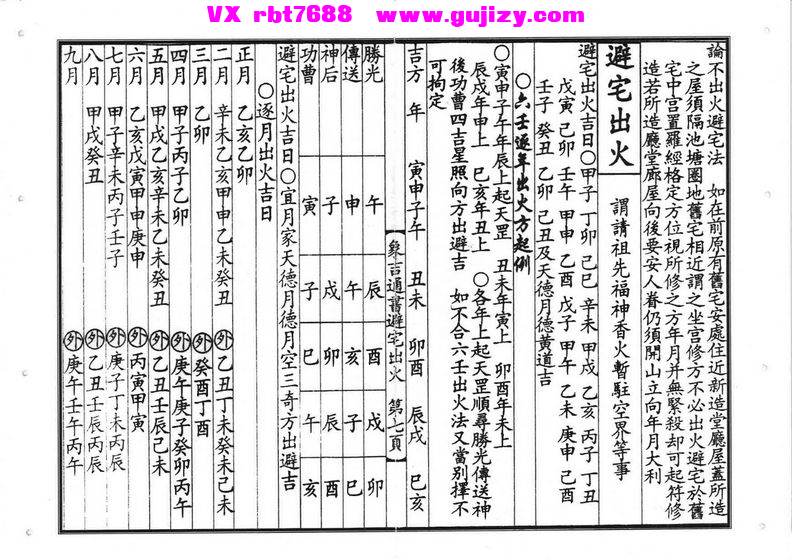 VX rbt7688 www.gujizy.com
論不出火避宅法 如在前原有舊宅安處住近新造堂廳屋蓋所造
之屋須隔池塘圈地舊宅相近謂之坐宮修方不必出火避宅於舊
宅中宮置羅經格定方位視所修之方年月并無緊殺却可起符修
造若所造廳堂廊屋向後要安人眷仍須開山立向年月大利
避宅出火 謂請祖先福神香火暫駐空界等事
避宅出火吉日○甲子 丁卯 己巳 辛未 甲戌 乙亥 丙子 丁丑
戊寅 己卯 壬午 甲申 乙酉 戊子 甲午 乙未 庚申 己酉
壬子 癸丑 乙卯 己丑及天德月德黃道吉
○六壬逐年出火方起例
○寅申子午年辰上起天罡 丑未年寅上 卯酉年未上
辰戌年申上 巳亥年丑上 ○各年上起天罡順尋勝光傳送神
後功曹四吉星照向方出避吉 如不合六壬出火法又當別擇不
可拘定
吉方 年 寅申子午 丑未 卯酉 辰戌 巳亥
象吉通書避宅出火 第七頁
勝光 午 辰 酉 戌 卯
傳送 申 午 亥 子 巳
神后 子 戌 卯 辰 酉
功曹 寅 子 巳 午 亥
避宅出火吉日○宜月家天德月德月空三奇方出避吉
○逐月出火吉日
正月 乙亥乙卯
二月 辛未乙亥甲申乙未癸丑 外 乙丑丁未癸未己未
三月 乙卯 外 癸酉丁酉
四月 甲子丙子乙卯 外 庚午庚子癸卯丙午
五月 甲戌乙亥辛未乙未癸丑 外 乙丑壬辰己未
六月 乙亥戊寅甲申庚申 外 丙寅甲寅
七月 甲子辛未丙子壬子 外 庚子丁未丙辰
八月 甲戌癸丑 外 乙丑壬辰丙辰
九月 外 庚午壬午丙午